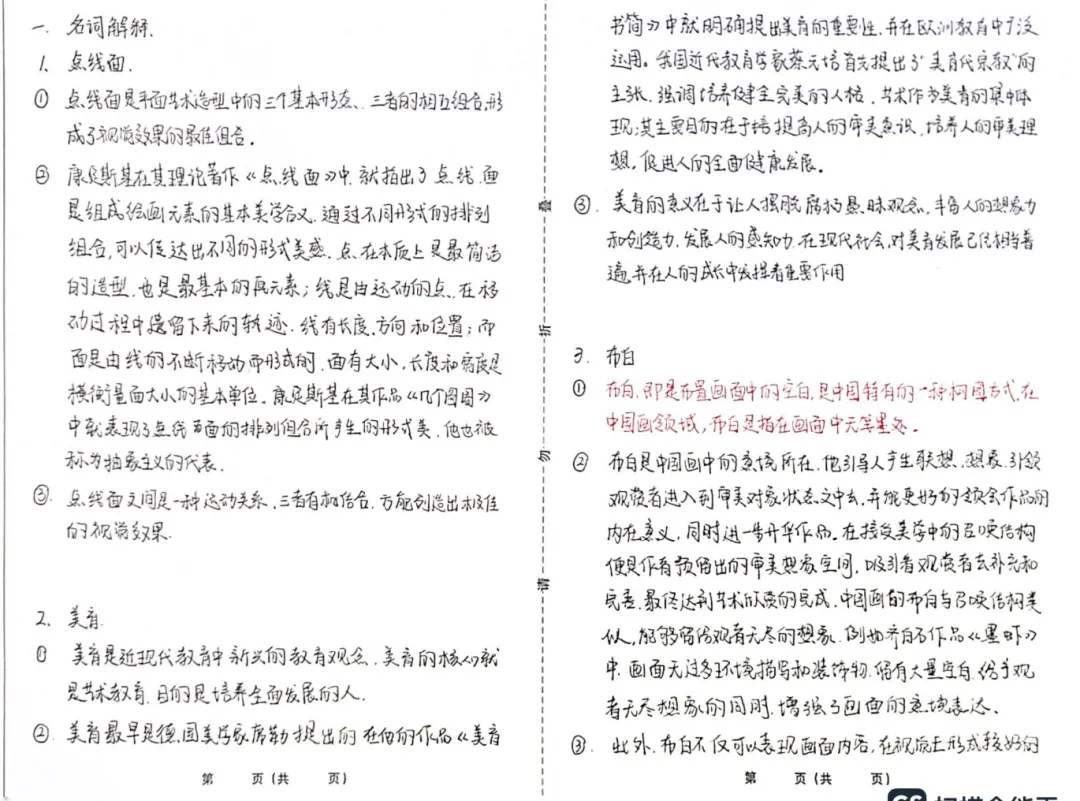 一. 名词解释.
1. 点线面.
① 点线面是平面艺术造型中的三个基本形态、三者的相互组合,形
成了视觉效果的最佳组合。
② 康定斯基在其理论著作《点、线、面》中,就指出了点、线、面
是组成绘画元素的基本美学含义,通过不同形式的排列
组合,可以传达出不同的形式美感、点、在本质上是最简洁
的造型,也是最基本的再元素;线是由运动的点、在移
动过程中遗留下来的轨迹、线有长度、方向和位置;而
面是由线的不断移动而形成的、面有大小、长度和宽度是
横衡量面大小的基本单位。康定斯基在其作品《几个圆圈》
中就表现了点线面的排列组合所产生的形式美、他也被
称为抽象主义的代表.
③ 点线面之间是一种运动关系、三者有机结合、方能创造出极佳
的视觉效果.
2. 美育.
① 美育是近现代教育中新兴的教育观念、美育的核心就
是艺术教育、目的是培养全面发展的人.
②. 美育最早是德国美学家席勒提出的 在他的作品《美育
第 页(共 页)
叠 折 勿 请
书简》中就明确提出美育的重要性,并在欧洲教育中广泛
运用。我国近代教育学家蔡元培首先提出了“美育代宗教”的
主张、强调培养健全完美的人格、艺术作为美育的集中体
现;其主要目的在于提高人的审美意识、培养人的审美理
想、促进人的全面健康发展。
③. 美育的意义在于让人摆脱腐朽愚昧观念、丰富人的想象力
和创造力、发展人的感知力、在现代社会,对美育发展已经相当普
遍,并在人的成长中发挥着重要作用
3. 布白
① 布白,即是布置画面中的空白,是中国特有的一种构图方式、在
中国画领域,布白是指在画面中无笔墨处。
② 布白是中国画中的意境所在、他引导人产生联想、想象、引领
观赏者进入到审美对象状态之中去、并能更好的领会作品的
内在意义,同时进一步升华作品。在接受美学中的召唤结构
便是作者预留出的审美想象空间,吸引着观赏者去补充和
完善、最终达到艺术欣赏的完成、中国画的布白与召唤结构类
似,能够留给观者无尽的想象、例如齐白石作品《墨虾》
中、画面无过多环境描写和装饰物、留有大量空白、给予观
者无尽想象的同时,增强了画面的意境表达、
③. 此外、布白不仅可以表现画面内容,在视觉上形成较好的
第 页(共 页)
CS 扫描全能王